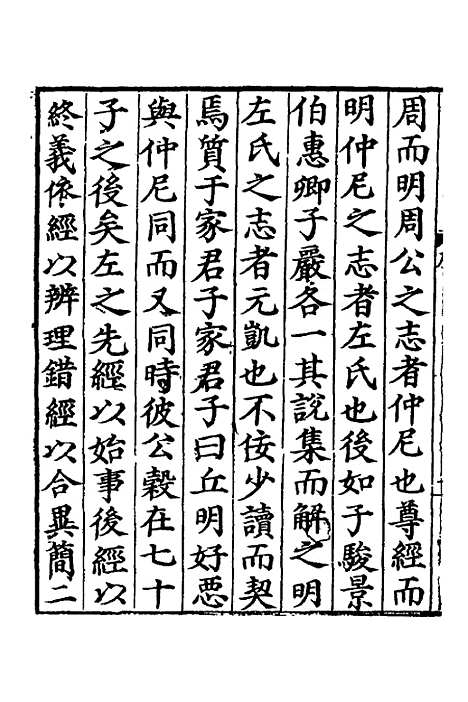 周而明周公之志者仲尼也尊經而
明仲尼之志者左氏也後如子駿景
伯惠卿子嚴各一其說集而解之明
左氏之志者元凱也不佞少讀而契
焉質于家君子家君子曰丘明好惡
與仲尼同而又同時彼公穀在七十
子之後矣左之先經以始事後經以
終義依經以辨理錯經以合異簡二